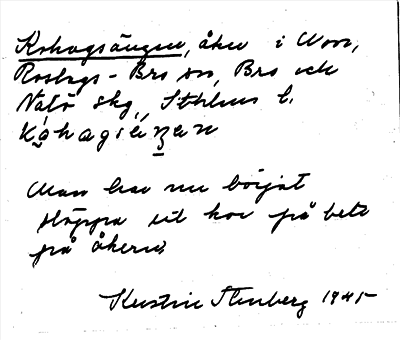 Kohagsängen, åker i Woxö,
Roslags-Bro sn, Bro och
Vätö skg, Sthlms l.
kọ́hagsäṇẓen
Man har nu börjat
släppa ut kor på bete
på åkern.
Kerstin Stenberg 1945